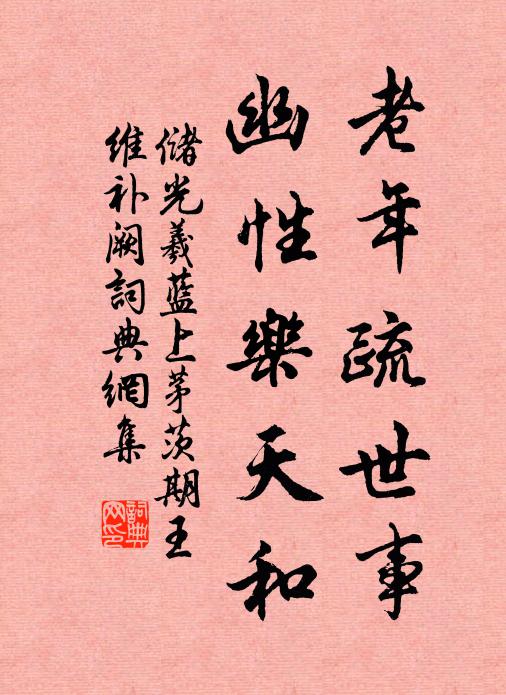 老年疏世事
幽性樂天和
儲光羲藍上茅茨期王
維补阙詞典網集
詞典网印